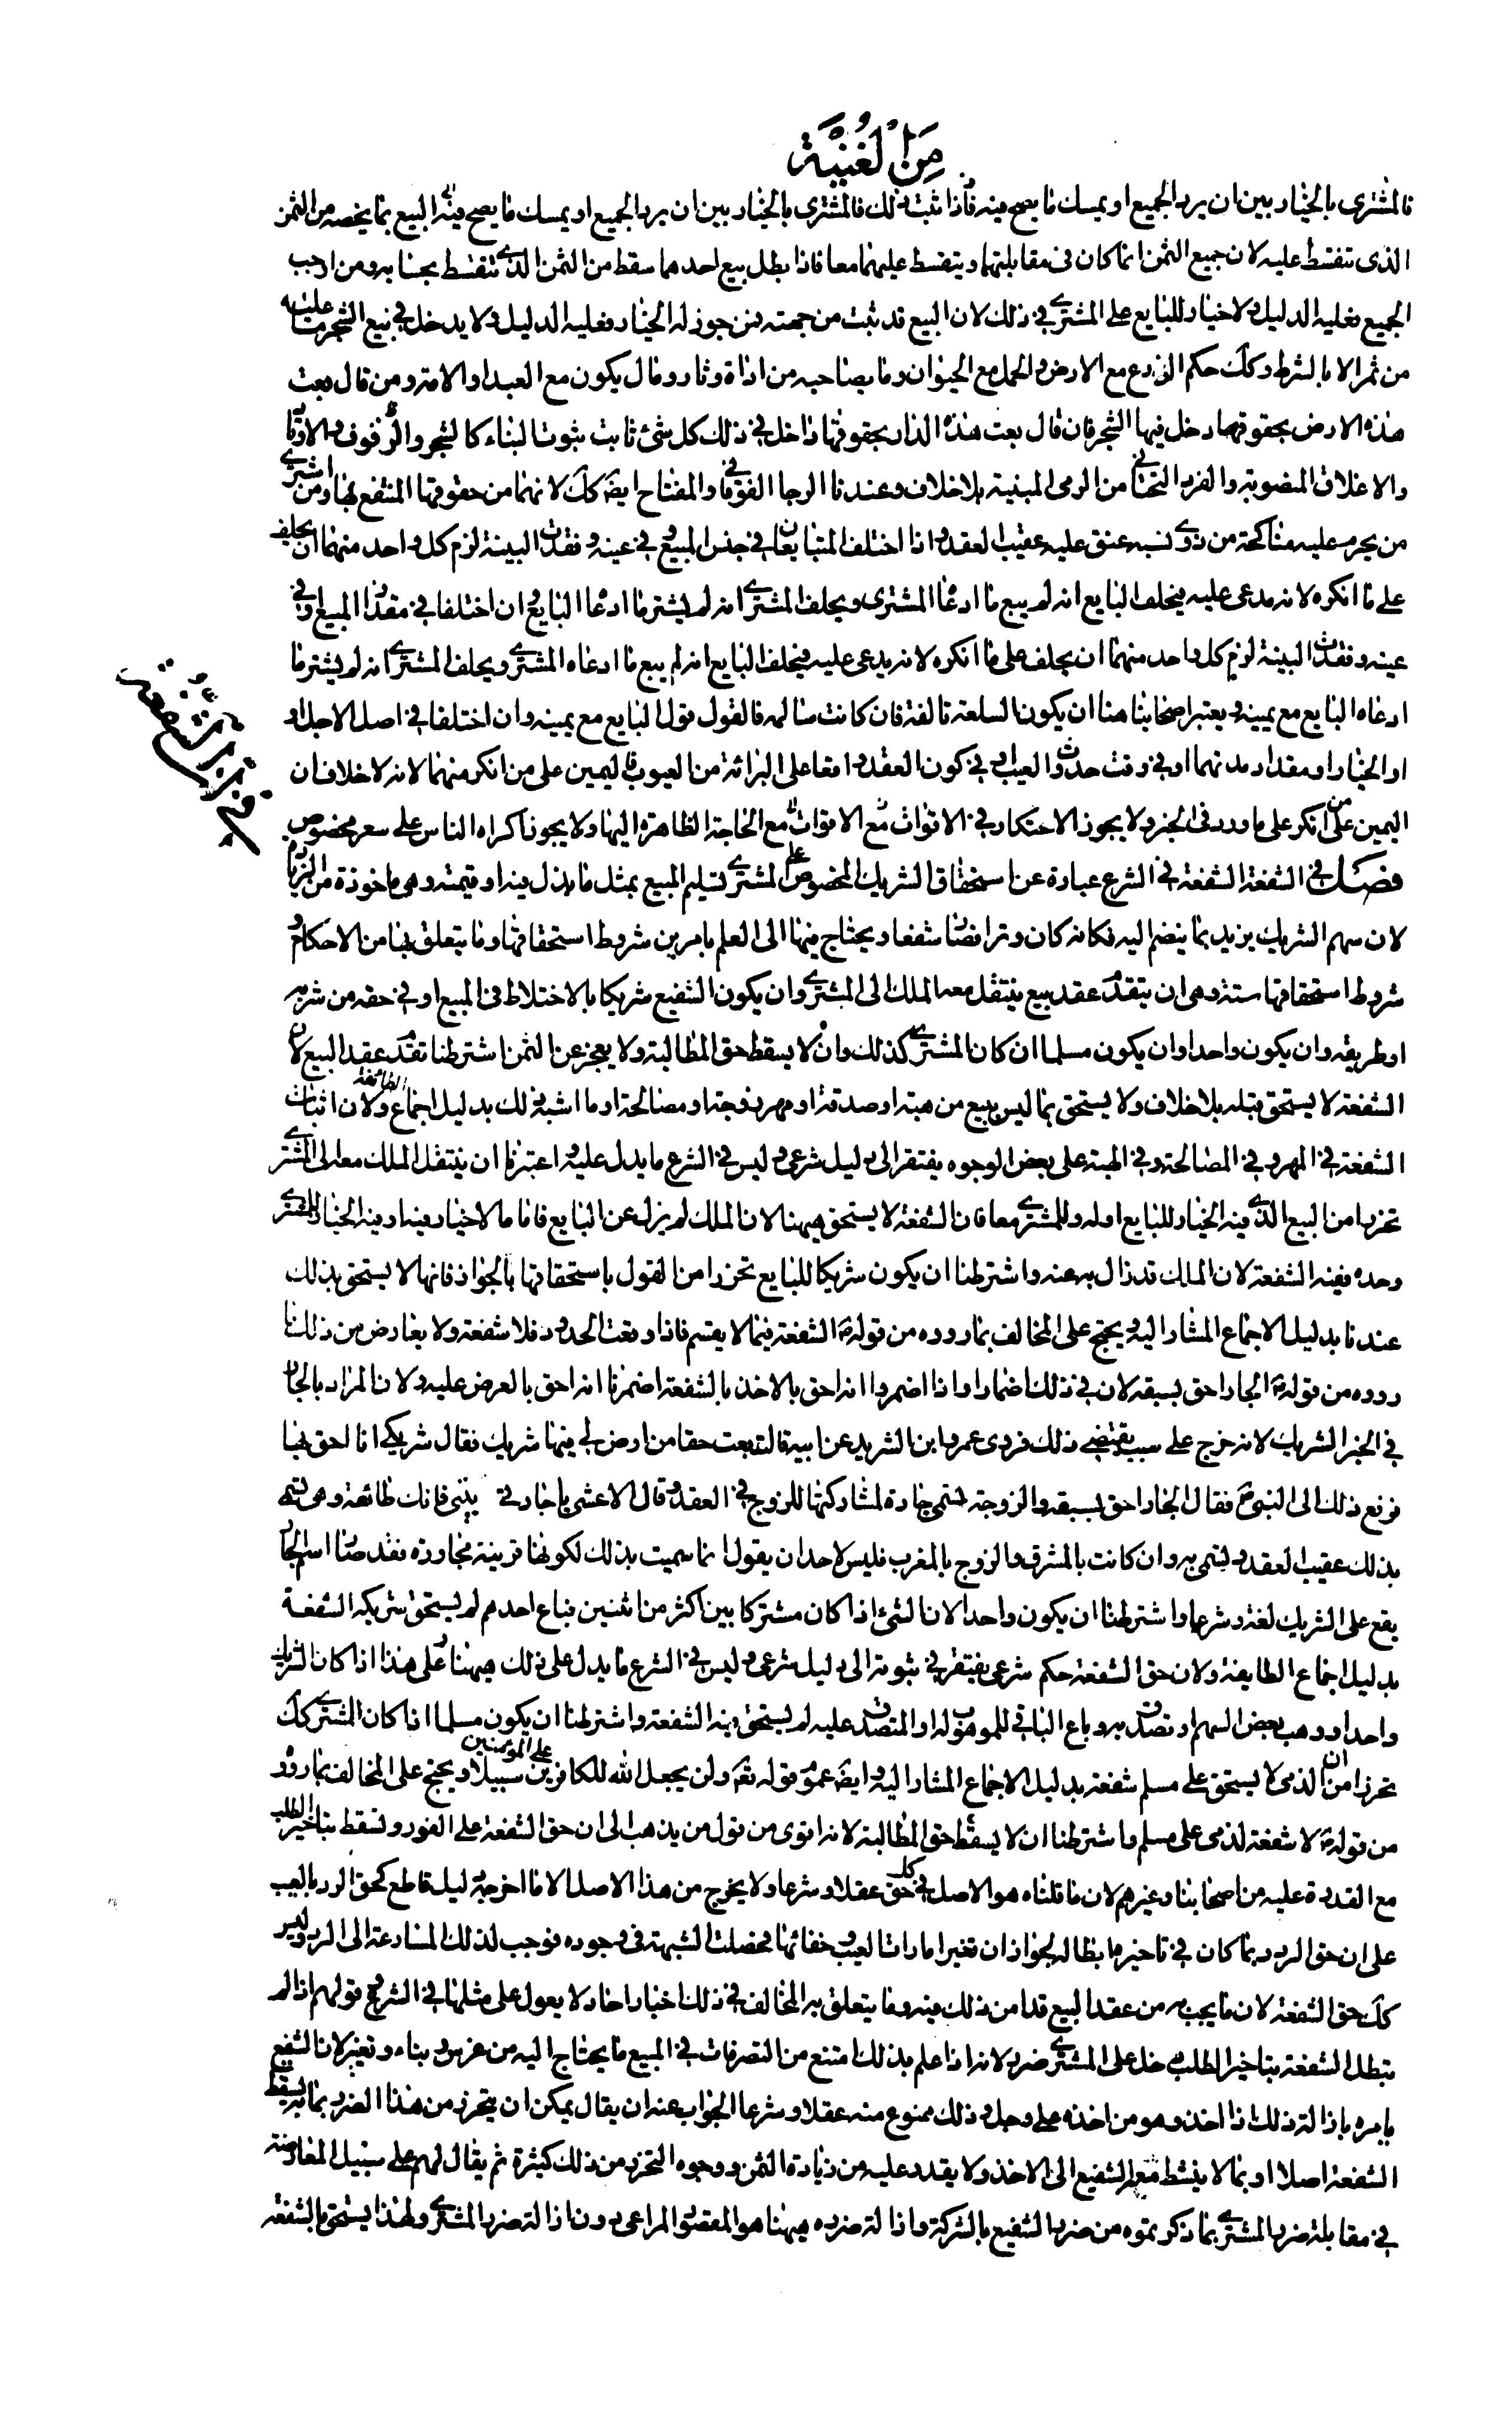 مِنَ الْغُنْيَة
فالمشترى بالخيار بين ان يرد الجميع او يمسك ما يصح فيه فاذا ثبت ذلك فالمشترى بالخيار بين ان يرد الجميع او يمسك ما يصح فيه البيع بما يخصه من الثمن
الذى تتقسط عليه لان جميع الثمن انما كان فى مقابلتهما ويتقسط عليهما معا فاذا بطل بيع احدهما سقط من الثمن الذى يتقسط بحسابه ومن اوجب
الجميع فعليه الدليل ولا خيار للبايع على المشترى فى ذلك لان البيع قد ثبت من جهته فمن جوز له الخيار فعليه الدليل ولا يدخل فى بيع الشجر ما عليه
من ثمر الا بالشرط وكك حكم الزرع مع الارض والحمل مع الحيوان وما يصاحبه من اداة وثار ومال يكون مع العبد او الامة ومن قال بعت
هذه الارض بحقوقها دخل فيها الشجر فان قال بعت هذه الدار بحقوقها داخل فى ذلك كل شئ ثابت بثوت البناء كالشجر والرفوف والاوتاد
والاغلاق المنصوبة والفرد التحتانى من الرحى المبنية بلا خلاف وعندنا الرحا الفوقانى والمفتاح ايضَ كك لانهما من حقوقها المنتفع بها ومن اشترى
من يحرم عليه مناكحته من ذوى نسبه عتق عليه عقيب العقد واذا اختلف المتبايعان فى جنس المبيع او فى عينه وفقدت البينة لزم كل واحد منهما ان يحلف
على ما انكره لانه مدعى عليه فيحلف البايع انه لم يبع ما ادعا المشترى ويحلف المشترى انه لم يشتر ما ادعا البايع وان اختلفا فى مقدار المبيع او فى
عينه وفقدت البينة لزم كل واحد منهما ان يحلف على ما انكره لانه مدعى عليه فيحلف البايع انه لم يبع ما ادعاه المشترى ويحلف المشترى انه لم يشتر ما
ادعاه البايع مع يمينه ويعتبر اصحابنا هنا ان يكون السلعة تالفة فان كانت سالمة فالقول قول البايع مع يمينه وان اختلفا فى اصل الاجل او
او الخيار او مقدار مدتهما او فى وقت حدوث العيب او فى كون العقد واقعا على البرائة من العيوب فاليمين على من انكر منهما لانه لا خلاف ان
اليمين على من انكر على ما ورد فى الخبر ولا يجوز الاحتكار فى الاقوات مع الحاجة الظاهرة اليها ولا يجوز اكراه الناس على سعر مخصوص
فصل فى الشفعة الشفعة فى الشرع عبارة عن استحقاق الشريك المخصوص على المشترى تسليم المبيع بمثل ما بذل فيه او قيمته وهى ماخوذة من الزيادة
لان سهم الشريك يزيد بما ينضم اليه فكانه كان وترا فصار شفعا ويحتاج فيها الى العلم بامرين شروط استحقاقها وما يتعلق بها من الاحكام و
شروط استحقاقها ستة وهى ان يتقدم عقد بيع ينتقل معه الملك الى المشترى وان يكون الشفيع شريكا بالاختلاط فى المبيع او فى حقه من شربه
او طريقه وان يكون واحدا وان يكون مسلما ان كان المشترى كذلك وان لا يسقط حق المطالبة ولا يعجز عن الثمن اشترطنا تقدم عقد البيع لان
الشفعة لا يستحق قبله بلا خلاف ولا يستحق بما ليس ببيع من هبة او صدقة او مهر زوجة او مصالحة او ما اشبه ذلك بدليل اجماع الطائفة ولان اثبات
الشفعة فى المهر وفى المصالحة وفى الهبة على بعض الوجوه يفتقر الى دليل شرعى وليس فى الشرع ما يدل عليه واعتبرنا ان ينتقل الملك معه الى المشترى
تحرزا من البيع الذى فيه الخيار للبايع او له وللمشترى معا فان الشفعة لا يستحق هيهنا لان الملك لم يزل عن البايع فاما ما لا خيار فيه او فيه الخيار للمشترى
وحده ففيه الشفعة لان الملك قد زال به عنه واشترطنا ان يكون شريكا للبايع تحرزا من القول باستحقاقها بالجوار فانها لا يستحق بذلك
عندنا بدليل الاجماع المشار اليه ويحتج على المخالف بما رووه من قوله ع الشفعة فيما لا يقسم فاذا وقعت الحدود فلا شفعة ولا يعارض من ذلك بما
رووه من قوله ع الجار احق بسبقه لان فى ذلك اضمارا واذا اضمروا انه احق بالاخذ بالشفعة اضمرنا انه احق بالعرض عليه ولان المراد بالجار
فى الخبر الشريك لانه خرج على سبب يقتضى ذلك فروى عمرو بن الشريد عن ابيه قال بعت حقا من ارض لى فيها شريك فقال شريكى انا احق بها
فرفع ذلك الى النبى ص فقال الجار احق بسبقه والزوجة تسمى جارة لمشاركتها للزوج فى العقد وقال الاعشى يا جارتى بينى فانك طالقة وهى تسمى
بذلك عقيب العقد وتسمى به وان كانت بالمشرق والزوج بالمغرب فليس لاحد ان يقول انما سميت بذلك لكونها قريبة مجاورة فقد صار اسم الجار
يقع على الشريك لغة وشرعا واشترطنا ان يكون واحدا لان الشئ اذا كان مشتركا بين اكثر من اثنين فباع احدهم لم يستحق شريكه الشفعة
بدليل اجماع الطايفة ولان حق الشفعة حكم شرعى يفتقر فى ثبوته الى دليل شرعى وليس فى الشرع ما يدل على ذلك هيهنا وعلى هذا اذا كان الشريك
واحدا ووهب بعض السهم او تصدق به وباع الباقى للموهوب له او المتصدق عليه لم يستحق فيه الشفعة واشترطنا ان يكون مسلما اذا كان المشترى كك
تحرزا من ان الذمى لا يستحق على مسلم شفعة بدليل الاجماع المشار اليه وايضَ عموم قوله تع ولن يجعل الله للكافرين على المؤمنين سبيلا ويحتج على المخالف بما رووه
من قوله ع لا شفعة لذمى على مسلم واشترطنا ان لا يسقط حق المطالبة لانه اقوى من قول من يذهب الى ان حق الشفعة على الفور وتسقط بتاخير الطلب
مع القدرة عليه من اصحابنا وغيرهم لان ما قلناه هو الاصل فى كل حق عقلا وشرعا ولا يخرج من هذا الاصل الا ما اخرجه دليل قاطع كحق الرد بالعيب
على ان حق الرد بما كان فى تاخيره ابطاله لجواز ان تغير امارات العيب وخفائها فحصلت الشبهة فى وجوده فوجب لذلك المسارعة الى الرد وليس
كك حق الشفعة لان ما يجب به من عقد البيع قد امن ذلك فيه وما يتعلق به المخالف فى ذلك اخبار احاد ولا يعول على مثلها فى الشرع وقولهم اذا لم
يبطل الشفعة بتاخير الطلب دخل على المشترى ضرر لانه اذا علم بذلك امتنع من التصرفات فى المبيع ما يحتاج اليه من غرس وبناء وتغيير لان الشفيع
يامره بازالة ذلك اذا اخذ وهو من اخذه على وجل وذلك ممنوع منه عقلا وشرعا الجواب عنه ان يقال يمكن ان يتحرز من هذا الضرر بما يسقط
الشفعة اصلا او بما لا ينشط معه الشفيع الى الاخذ ولا يقدر عليه من زيادة الثمن ووجوه التحرز من ذلك كثيرة ثم يقال لهم على سبيل المعارضة
فى مقابلة ضرر المشترى بما ذكرتموه من ضرر الشفيع بالشركة وازالة ضرره هيهنا هو المقصود المراعى دون ازالة ضرر المشترى ولهذا يستحق الشفعة